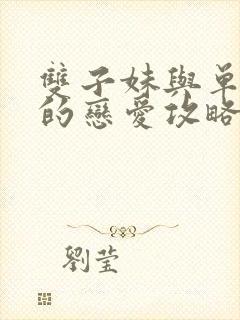 雙子妹與单
的戀愛攻略
劉莹